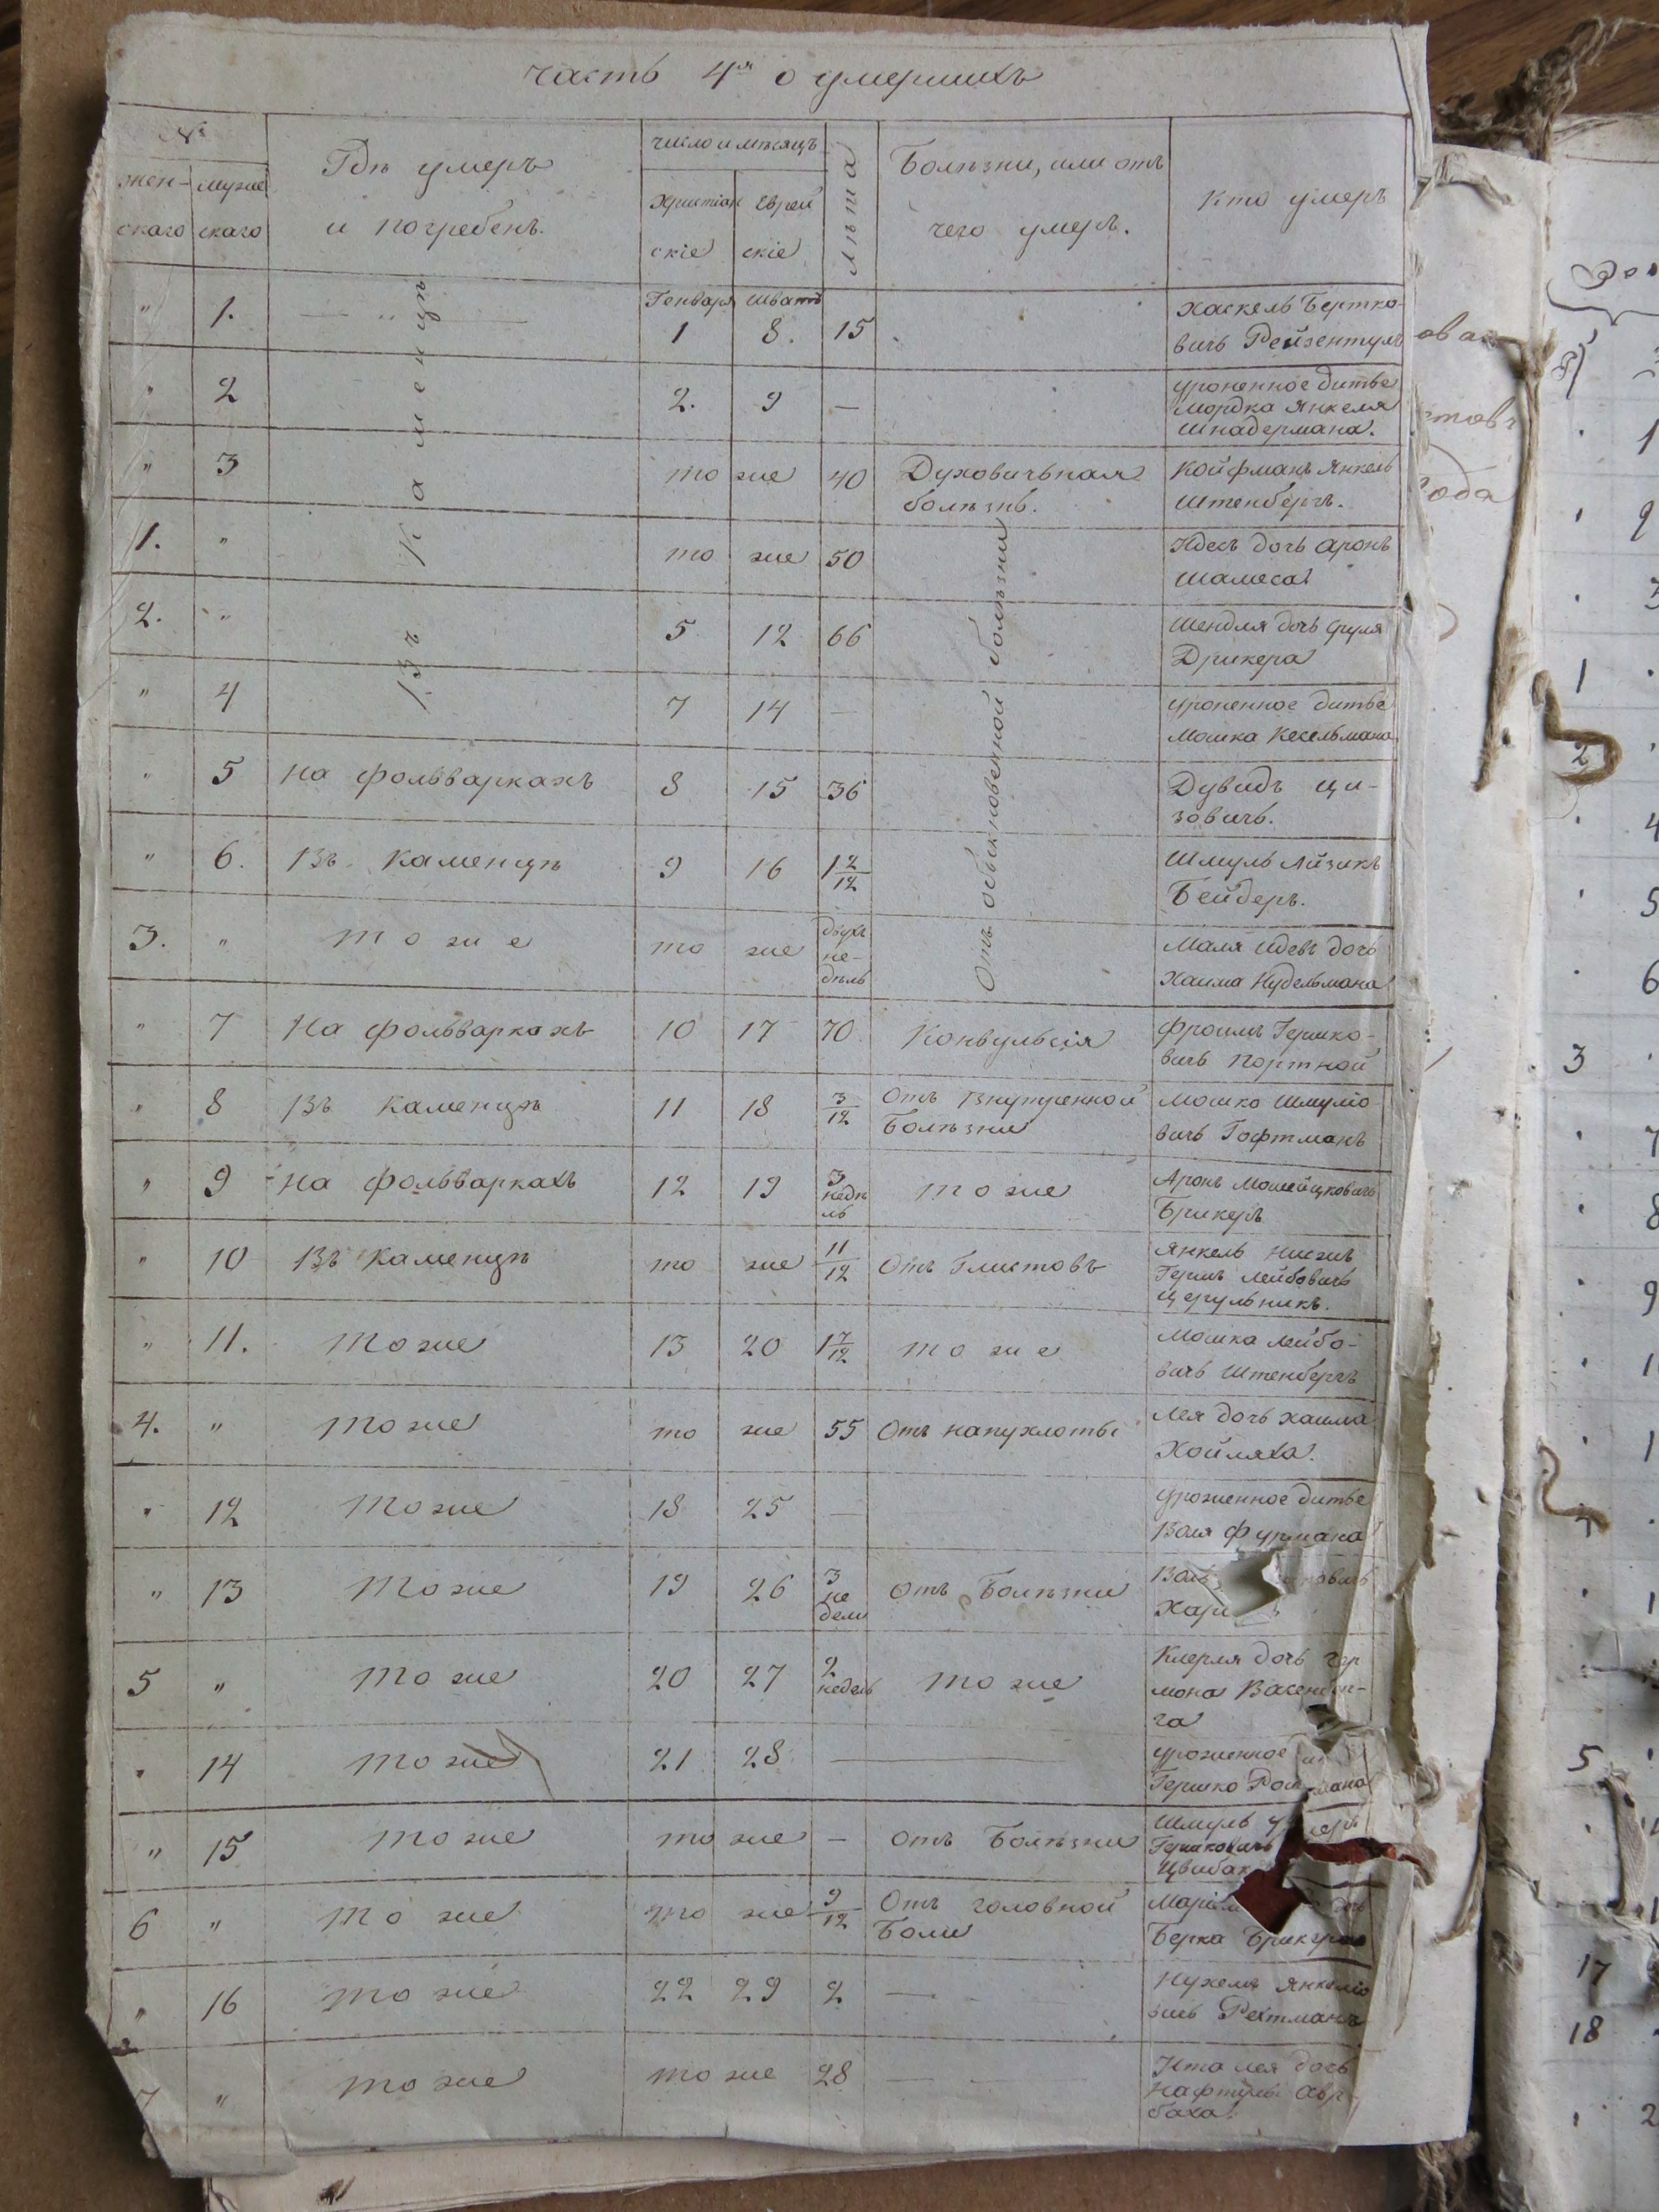 часть 4я о умершихъ
№
жен-
скаго
мужес
скаго
Гдѣ умеръ
и погребенъ.
число и мѣсяцъ
Христіан
скіе
Еврей
скіе
лѣта
Болѣзни, или отъ
чего умеръ.
кто умеръ
въ Каменцѣ
Отъ обыкновенной болѣзни
" 1. — " — Генваря 1 Шватъ 8. 15
Хаскель Бертко-
вичь Рейзентуль
" 2 2. 9 —
уроненное дитье
Мордка Янкеля
Шнадермана.
" 3 то же 40 Духовичьная
болѣзнь.
Койфманъ Янкель
Штенбергъ.
1. " то же 50
Идесъ дочь Аронъ
Шамеса
2. " 5 12 66
Шендля дочь Сруля
Дрикера
" 4 7 14 —
уроненное дитье
Мошка Кесельмана
" 5 на фольваркахъ 8 15 36
Дувидъ Ци-
зовичь.
" 6. въ Каменцѣ 9 16 1 2/12
Шмуль Айзикъ
Бейдеръ.
3. " тоже то же двухъ
не-
дѣль
Маля Идевъ дочь
Хаима Нудельмана
" 7 На фольваркахъ 10 17 70 Конвульсія
Фроимъ Гершко-
вичь Портной
" 8 въ Каменцѣ 11 18 3/12 Отъ внутренной
Болѣзни
Мошко Шмулю
вичь Гофтманъ
" 9 на фольваркахъ 12 19 3
недѣ
ль
тоже
Аронъ Мошейцковичь
Брикеръ
" 10 въ Каменцѣ то же 11/12 Отъ Глистовъ
Янкель
Гершъ Лейбовичь
Церульникъ.
" 11. тоже 13 20 1 7/12 тоже
Мошка Лейбо-
вичь Штенбергъ
4. " тоже то же 55 Отъ напухлоты
Лея дочь Хаима
Хойляха.
" 12 тоже 18 25 —
уроженное дитье
Воля Фурмана
" 13 тоже 19 26 3
не
дели
Отъ Болѣзни
Хар
5 " тоже 20 27 2
недель
тоже
дочь Гер
мона
га
" 14 тоже 21 28 — —
уроженное
Гершко
" 15 тоже то же — Отъ Болѣзни
Шмуль
Гершковичь
Цвибак
6 " тоже то же 9/12 Отъ головной
Боли
дочь
Берка
" 16 тоже 22 29 2 —
Нухемъ Янкелю
вичь Рехтманъ
7 " тоже то же 28 — —
Ита Лея дочь
Нафтулы Авр
баха.
ова
ода
1
2
3
5
17
18
4
5
6
7
8
9